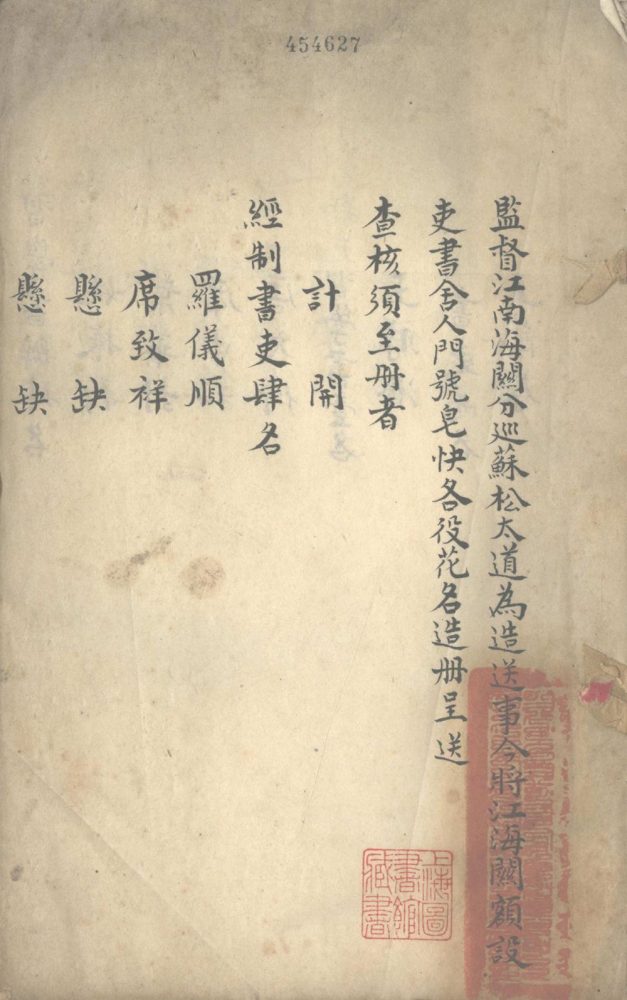 454627
監督江南海關分巡蘇松太道為造送事今將江海關額設
吏書舍人門號皂快各役花名造册呈送
查核須至册者
計開
經制書吏肆名
羅儀順
席致祥
懸缺
懸缺
上海圖
書館
藏書